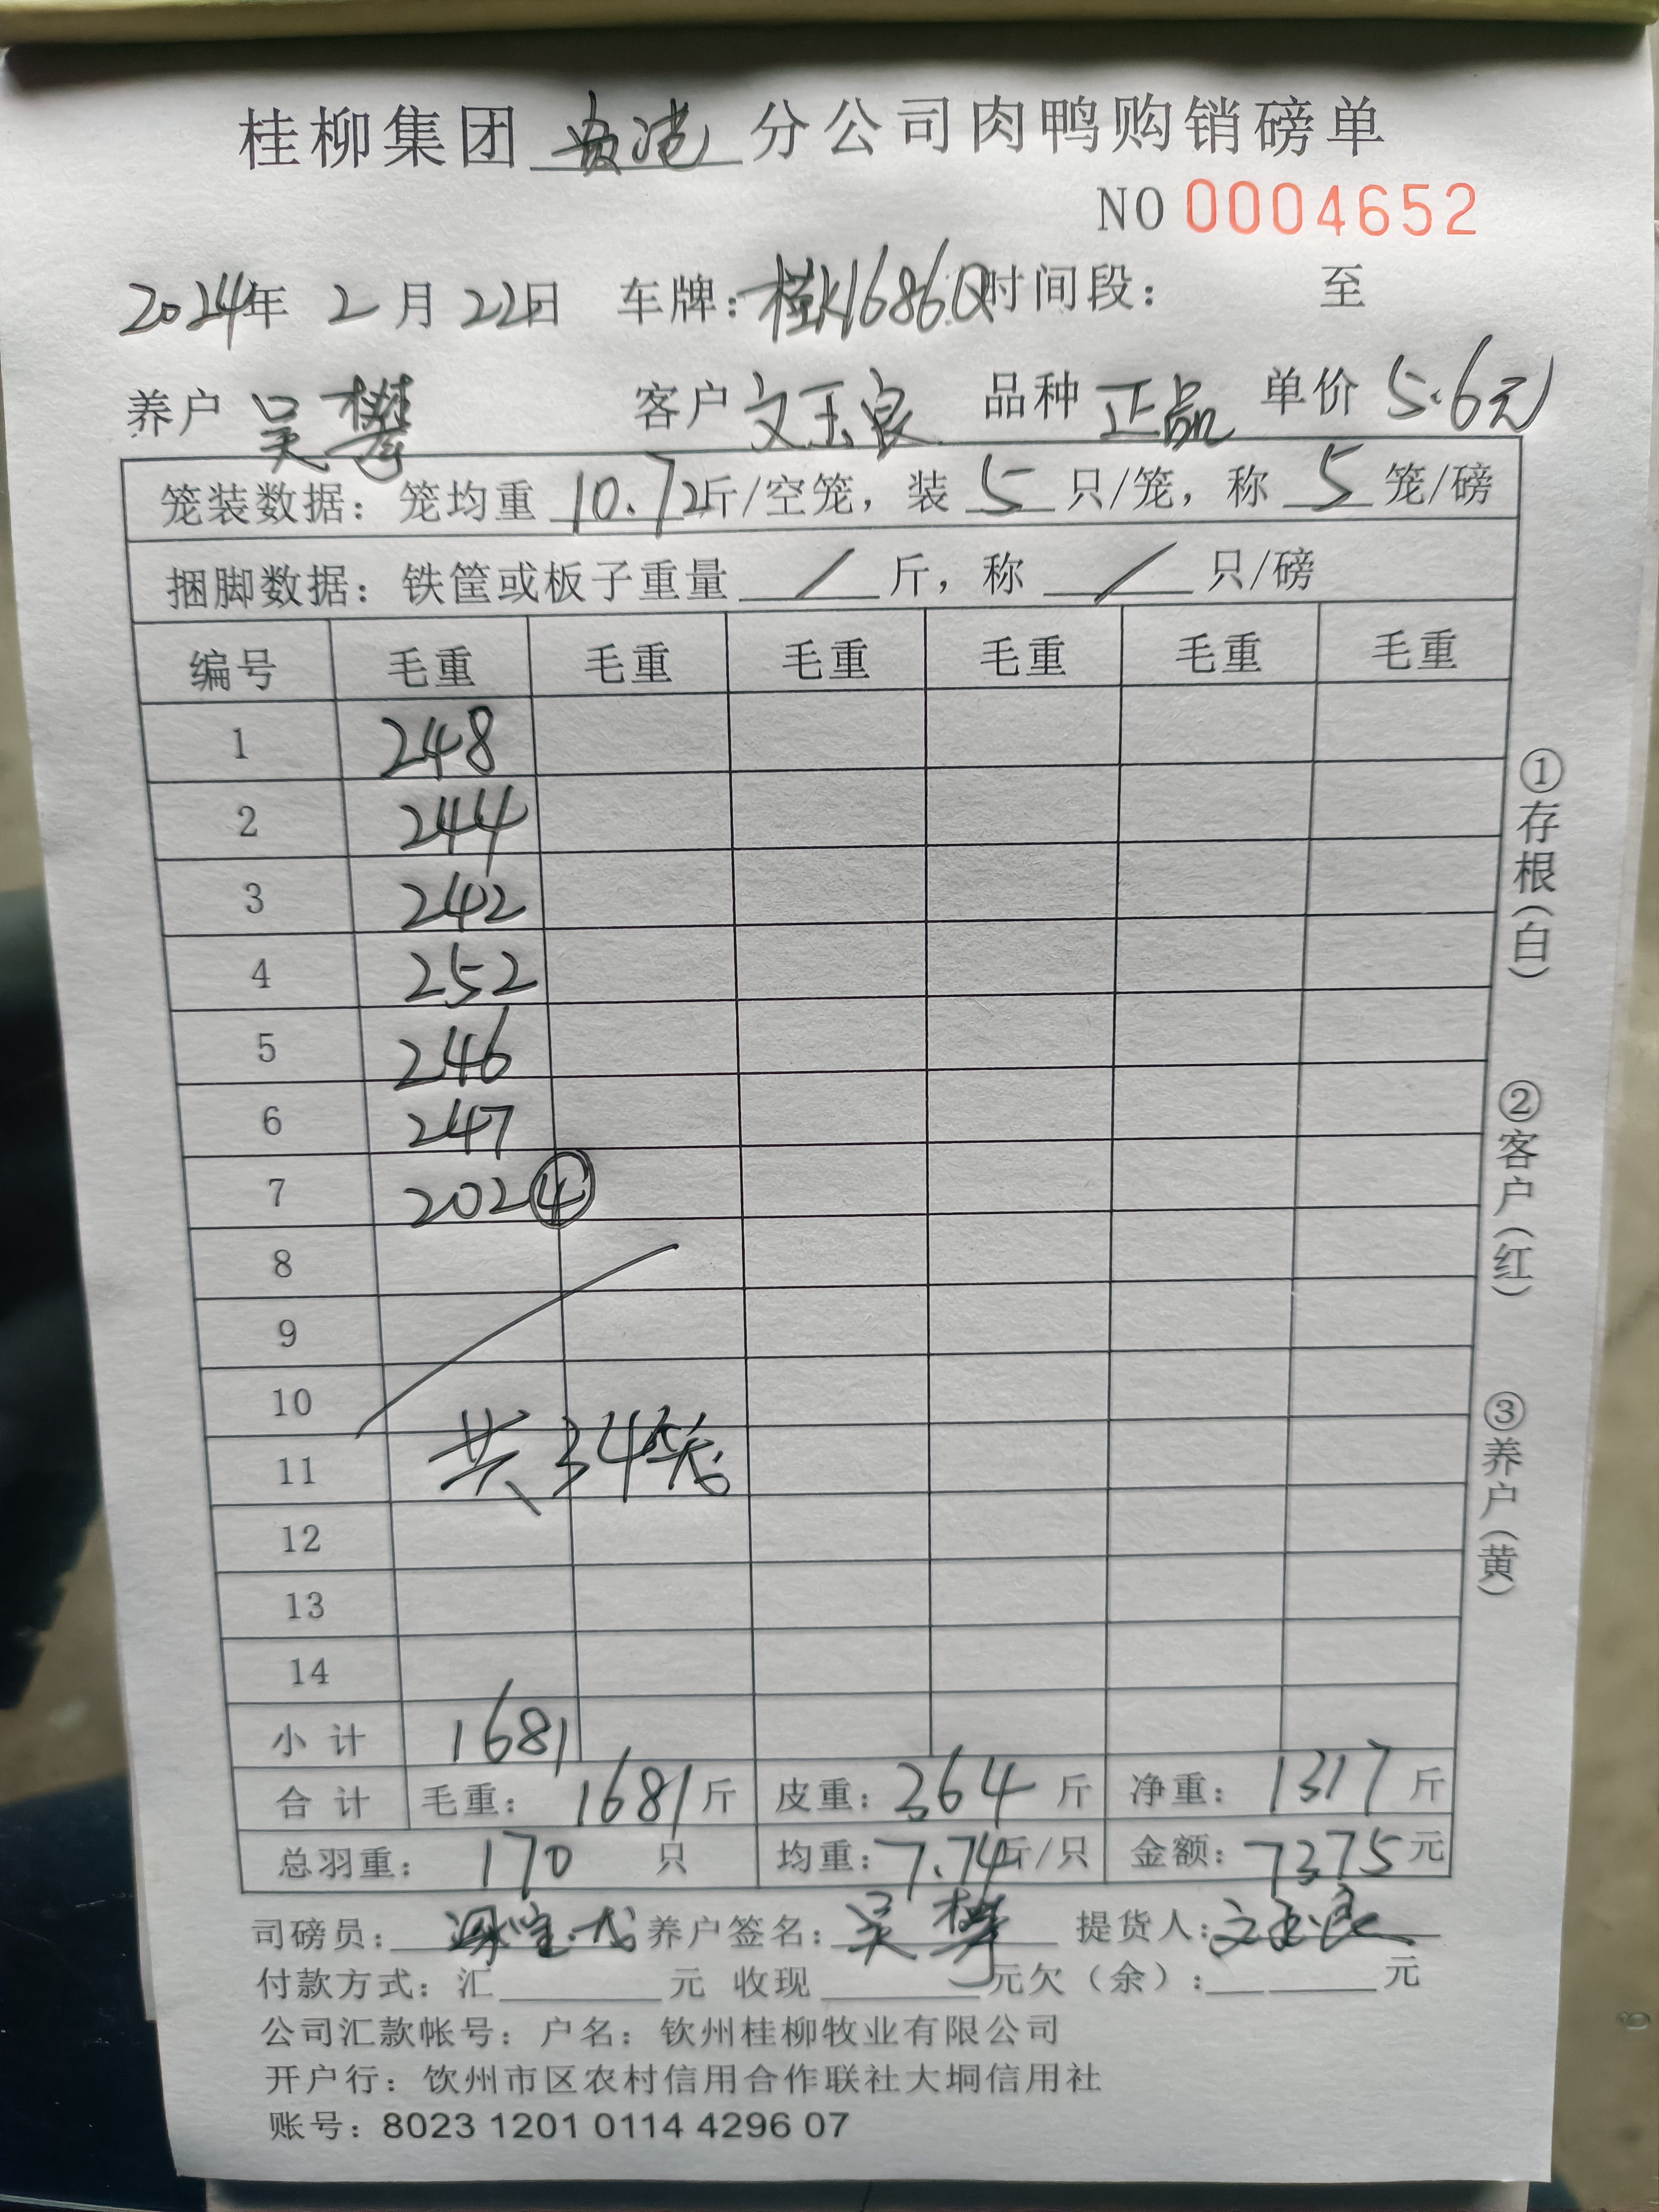 桂柳集团 贵港 分公司肉鸭购销磅单
NO 0004652
2024年 2月 22日 车牌：桂K1686Q 时间段： 至
养户 吴攀 客户 文玉良 品种 正品 单价 5.6元
笼装数据：笼均重 10.72斤/空笼，装 5 只/笼，称 5 笼/磅
捆脚数据：铁筐或板子重量 / 斤，称 / 只/磅
编号 毛重 毛重 毛重 毛重 毛重 毛重
1 248
2 244
3 242
4 252
5 246
6 247
7 202④
8
9
10
11 共34笼
12
13
14
小计 1681
合计 毛重：1681斤 皮重：364斤 净重：1317斤
总羽重：170只 均重：7.74斤/只 金额：7375元
司磅员： 养户签名：吴攀 提货人：文玉良
付款方式：汇 元 收现 元欠（余）： 元
公司汇款帐号：户名：钦州桂柳牧业有限公司
开户行：饮州市区农村信用合作联社大垌信用社
账号：8023 1201 0114 4296 07
①存根（白）
②客户（红）
③养户（黄）